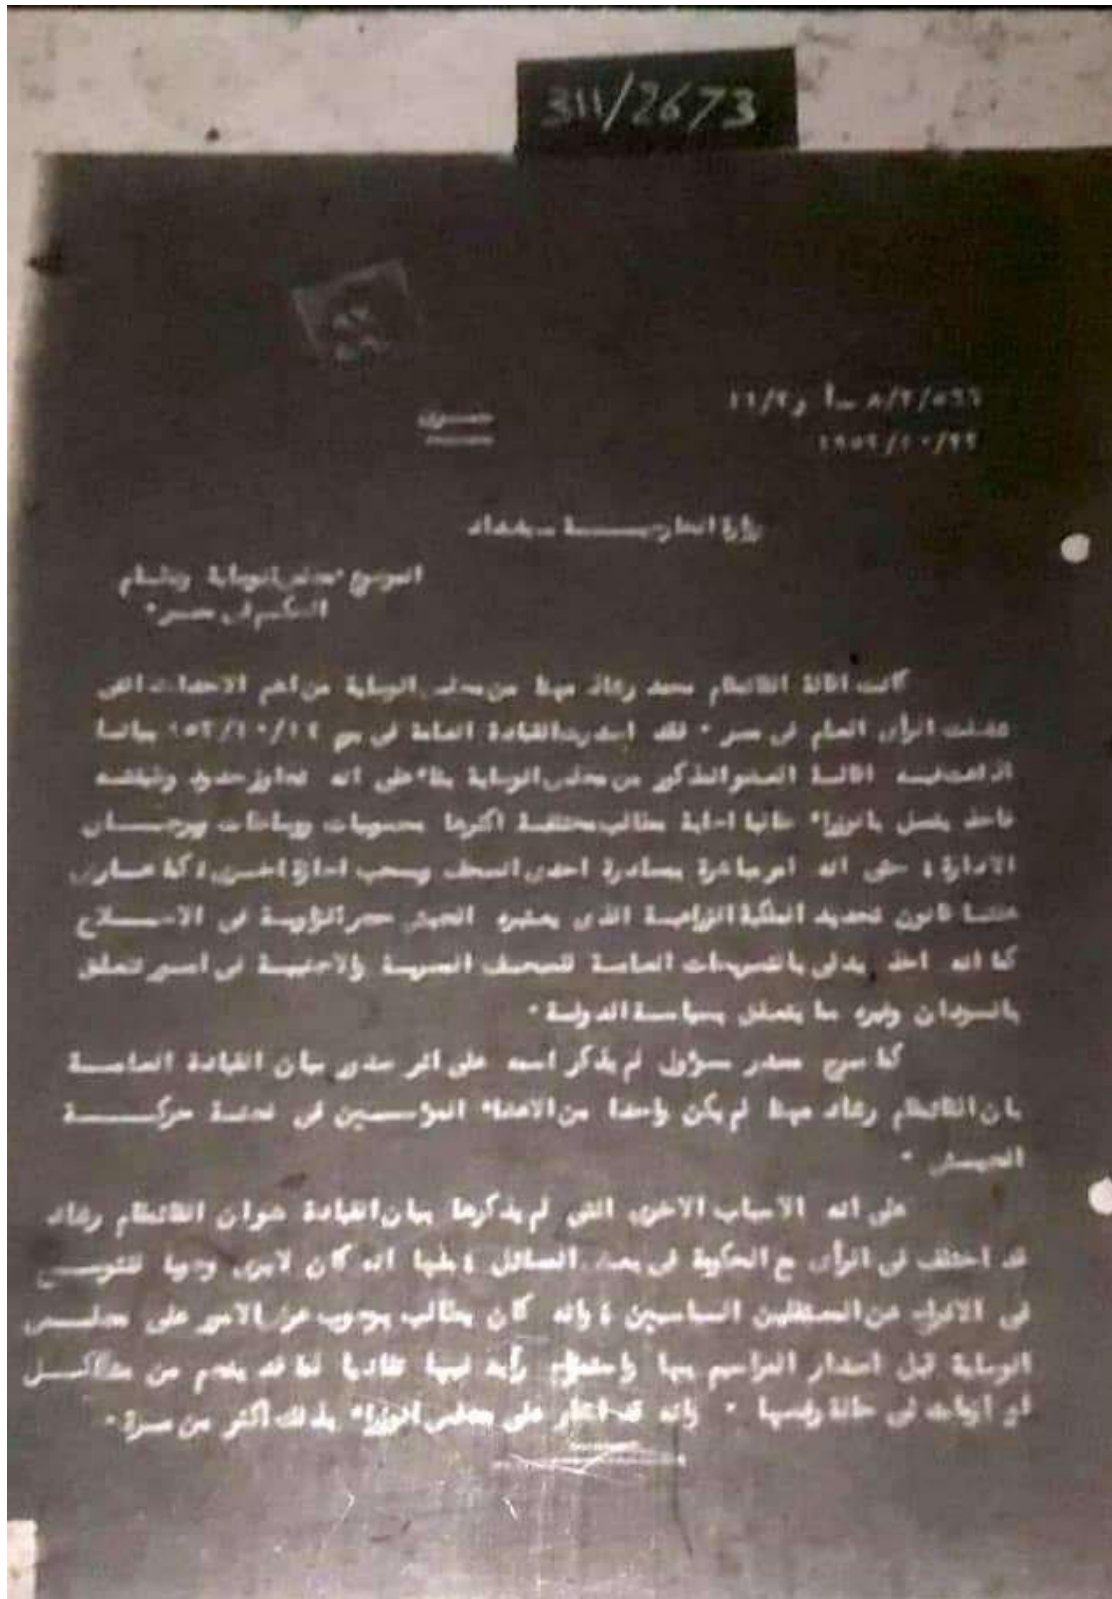 311/2673
١٩٥٢/١٠/٢٢
سرى
وزارة الخارجيـــــة ـ بغداد
الموضوع مجلس الوصاية ونظام
الحكم في مصر ٠
كانت اقالة القائمقام محمد رشاد مهنا من مجلس الوصاية من اهم الاحداث التي
شغلت الرأى العام في مصر ٠ فقد اصدرت القيادة العامة في يوم ١٩٥٢/١٠/١٤ بيانا
اذاعت فيـه اقالـة العضو المذكور من مجلس الوصاية بناء على انه تجاوز حدود وظيفتـه
فأخذ يتصل بالوزراء طالبا اجابة مطالب مختلفـة اكثرها محسوبيات ووساطات ورجــال
الادارة ، حتى انه امر مباشرة بمصادرة احدى الصحف وسحب اجازة اخـرى ، كما عــارض
علنـا قانون تحديد الملكية الزراعيـة الذى يعتبره الجيش حجر الزاويـة في الاصـــلاح
كما انه اخذ يدلى بالتصريحات العامـة للصحف المصريـة والاجنبيـة في امـور تتعلق
بالسودان وغيره مما يتعلق بسياسة الدولـة ٠
كما صرح مصدر مسؤول لم يذكر اسمه على اثر صدور بيان القيادة العامــة
بان القائمقام رشاد مهنا لم يكن واحدا من الاعضاء المؤسســين في لجنـة حركــة
الجيـش ٠
على انه الاسباب الاخرى التي لم يذكرها بيان القيادة هو ان القائمقام رشاد
قد اختلف في الرأى مع الحكومة في بعض المسائل ، منها انه كان لا يرى وجها للتوسـع
في الافراج عن المعتقلين السياسيين ، وانه كان يطالب بوجوب عرض الامور على مجلـس
الوصاية قبل اصدار المراسيم بها واحترام رأيه فيها تفاديا لما قد ينجم من مشاكــل
او ازمات في حالة رفضها ٠ وانه قد اشار على مجلس الوزراء بذلك اكثر من مـرة ٠